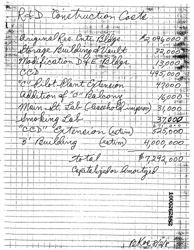 R&D Construction Costs
Original Res. Cntr. Bldgs $2,096,000
Storage Building & Vault 32,000
Modification D&E Bldgs 13,000
CCD 495,000
"C" Pilot Plant Extension 47000
Addition of "B" Balcony 16,000
Main St. Lab (Leasehold improv) 31,000
Smoking Lab 37,000
"CCD" Extension (estim) 525,000
"B" Building (estim) 4,000,000
Total $7,292,000
Capitalized or Amortized